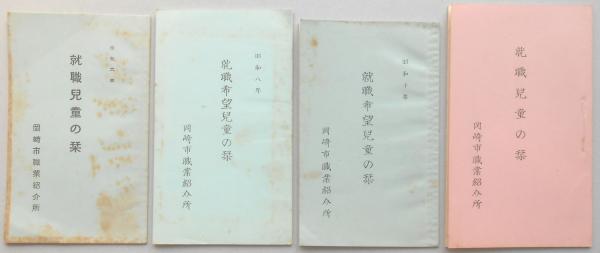 就職兒童の栞
岡崎市職業紹介所
昭和八年
就職希望兒童の栞
岡崎市職業紹介所
昭和十年
就職希望兒童の栞
岡崎市職業紹介所
就職兒童の栞
岡崎市職業紹介所